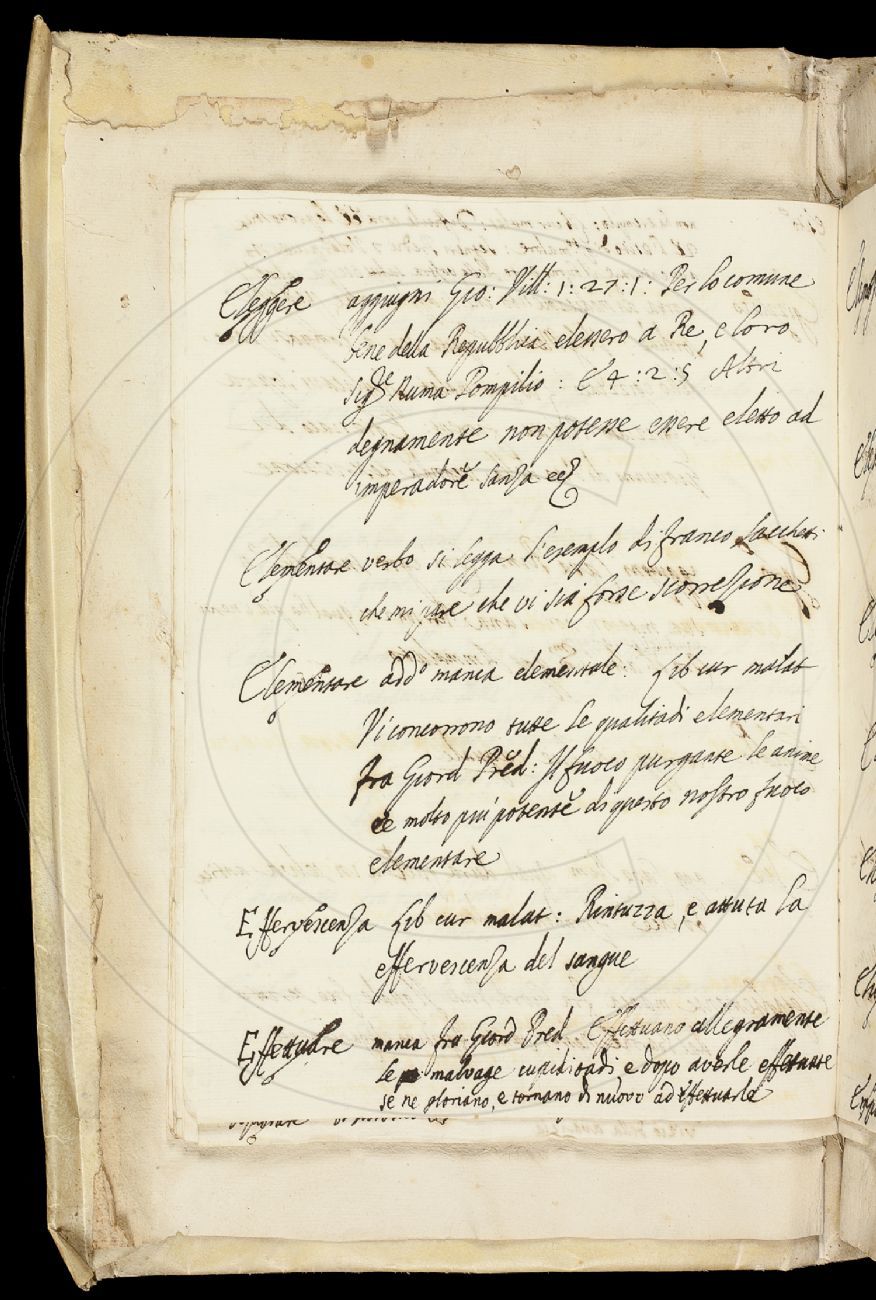 Eleggere aggiugni Gio: Vill: 1: 27: 1: Per lo comune
bene della Repubbica elessero a Re, e loro
Sig.re Numa Pompilio: E 4: 2: 5 Altri
degnamente non potesse essere eletto ad
imperadorẽ sanza ec
Elementare verbo si legga l'esempio di franco Sacchetti
che mi pare che vi sia forse scorrezione
Elementare add.o manca elementale: Lib cur malat
Vi concorrono tutte le qualitadi elementari
fra Giord Pred: Il fuoco purgante le anime
ee molto piu potentẽ di questo nostro fuoco
elementare
Effervescenza Lib cur malat: Rintuzza, e attuta la
effervescenza del sangue
Effettuare manca fra Giord Pred Effettuano allegramente
le malvage cupiditadi e dopo averle effettuate
se ne gloriano, e tornano di nuovo ad effettuarle